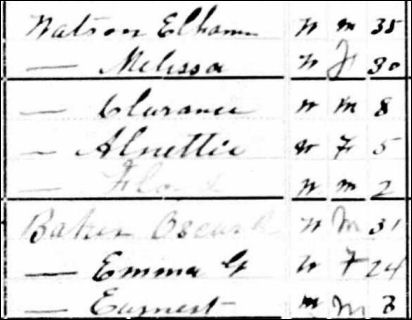 Watson Elham W M 35
— Melissa W F 30
— Clarance W M 8
— Alnettie W F 5
— Floyd W M 2
Baker Oscar W M 31
— Emma G W F 24
— Earnest M M 3